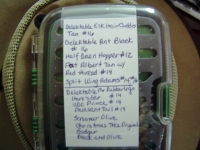 Delektable Elk Hair Caddis
Tan #16
Delektable Ant Black
#16
Half Down Hopper #12
Fat Albert Tan w/
Red thread #14
Split Wing Adams #14
Delektable Mr Rubberlegs
#14
UDC Prince #14
Pheasant Tail #14
Screamer Olive
Christmas Tree Original
Badger
Black and Olive